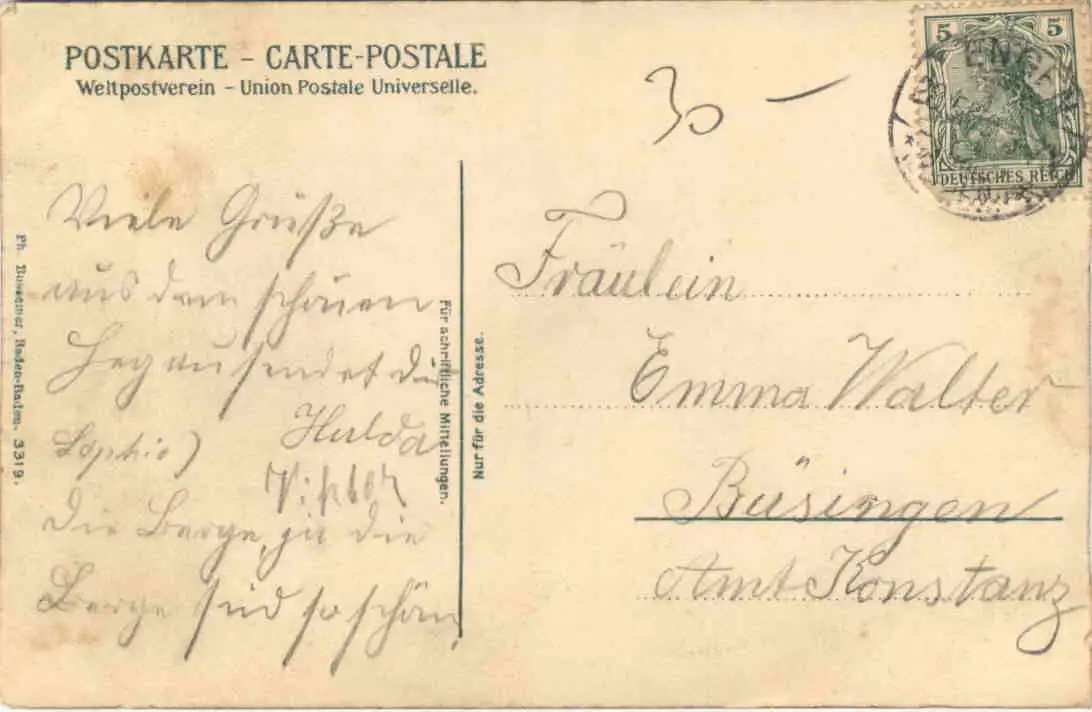 POSTKARTE – CARTE-POSTALE
Weltpostverein – Union Postale Universelle.
30 –
5 5
ENGEN
DEUTSCHES REICH
Viele Grüße
aus dem schönen
Hegau sendet dir
Sophie)
Hulda
die Berge, ja die
Berge sind so schön
Ph. Bussemer, Baden-Baden. 3319.
Für schriftliche Mitteilungen.
Nur für die Adresse.
Fräulein
Emma Walter
Büsingen
Amt Konstanz